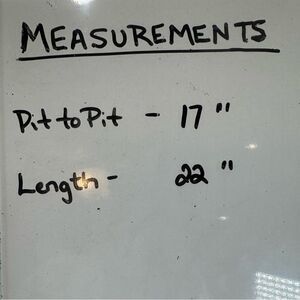 MEASUREMENTS
Pit to Pit - 17 "
Length - 22 "